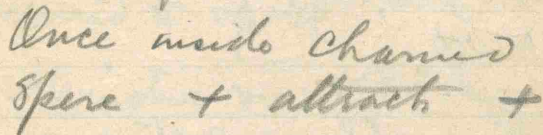 Once inside charmed
spere + attracts +